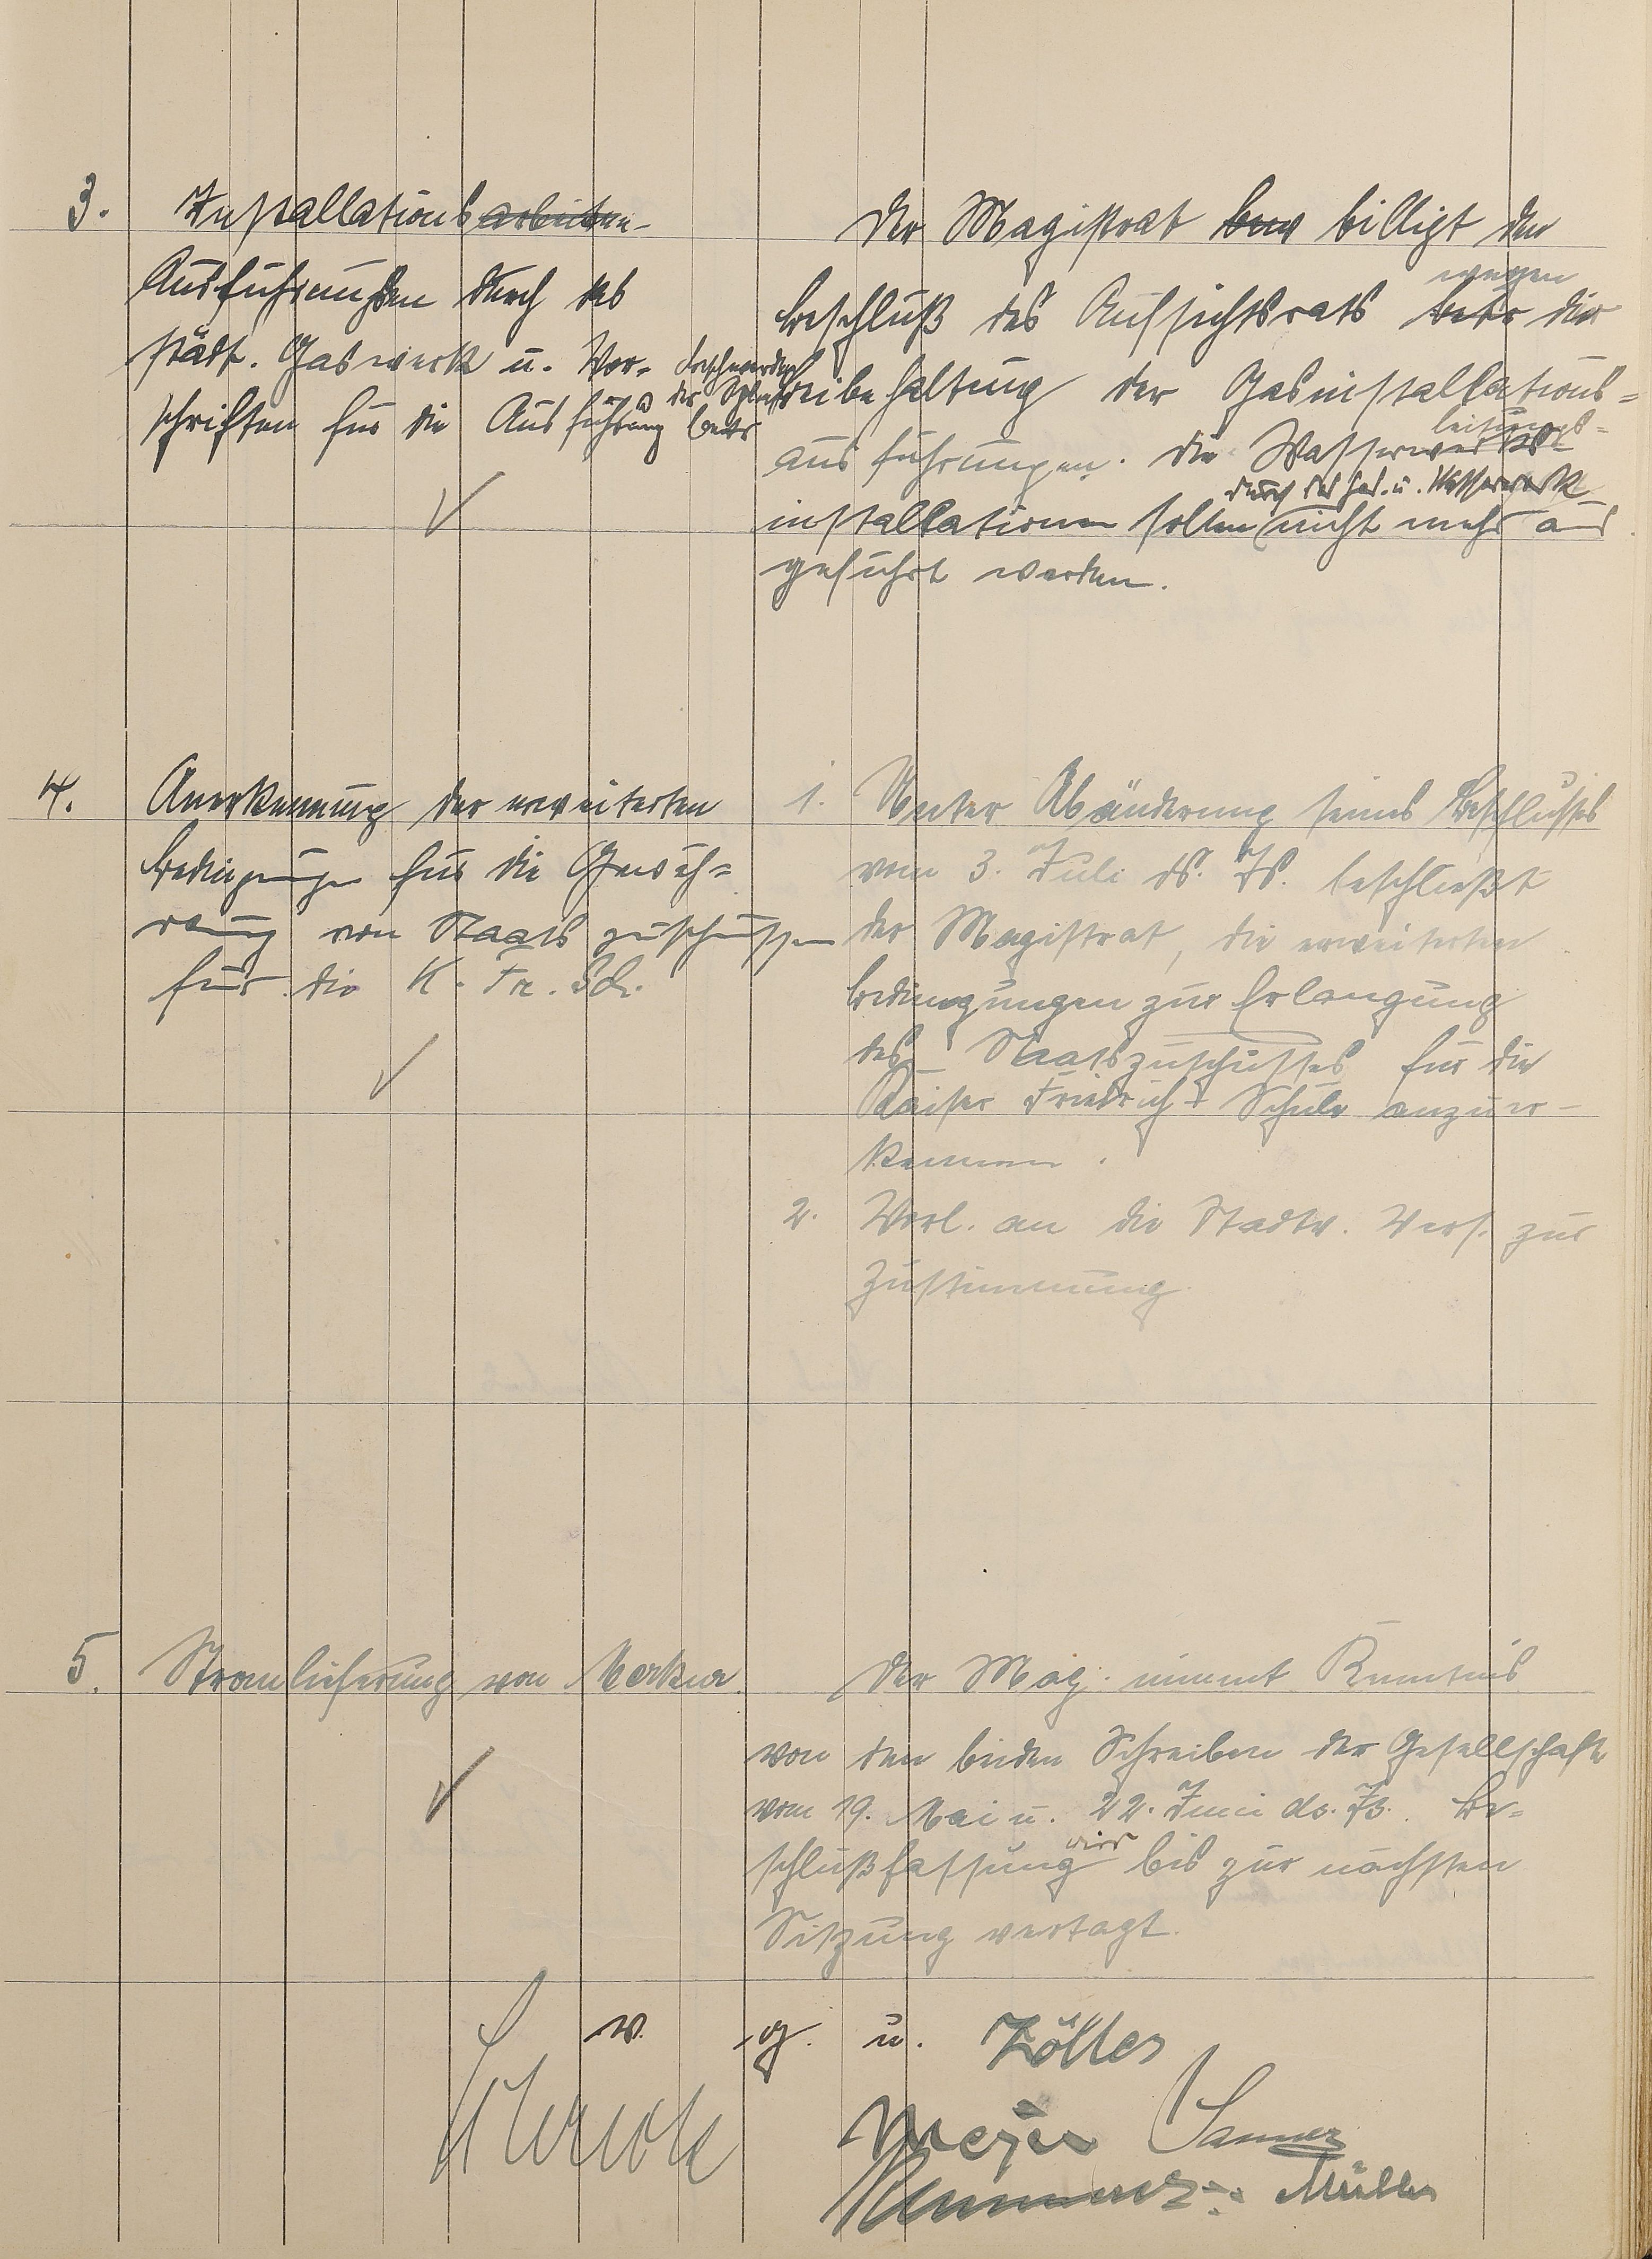 3.
Installationsarbeiten-
Ausführungen durch das
städt. Gaswerk u. Vor-
schriften für die Ausführung
Beschwerden
der
Der Magistrat billigt den
wegen
Beschluß des Aufsichtsrats betr die
Beibehaltung der Gasinstallations=
leitungs=
ausführungen. Die Wasserwerks
durch das Gas. u. Wasserwerk
installationen sollen nicht mehr aus
geführt werden.
4.
Anerkennung der erweiterten
Bedingungen für die Gewäh=
rung von Staatszuschüssen
für die K. Fr. Sch.
1. Unter Abänderung seines Beschlusses
vom 3. Juli ds. Js. beschließt
der Magistrat, die erweiterten
Bedingungen zur Erlangung
des Staatszuschusses für die
Kaiser Friedrich-Schule anzuer-
kennen.
2. Vorl. an die Stadtv. Vers. zur
Zustimmung
5.
Stromlieferung von Merkur.
Der Mag. nimmt Kenntnis
von den beiden Schreiben der Gesellschaft
vom 19. Mai u. 22. Juni ds. Js. Be=
wird
schlußfassung bis zur nächsten
Sitzung vertagt.
v. g. u.
Zöller
Meyer
Müller